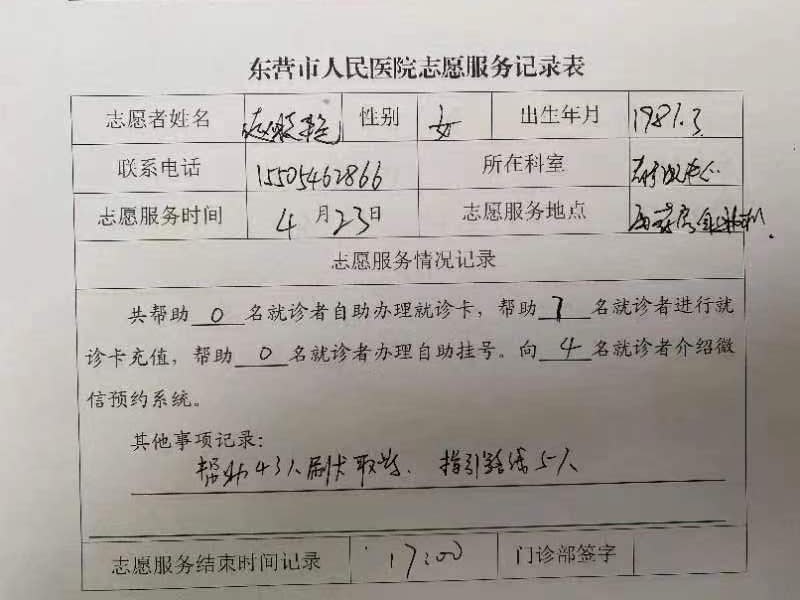 东营市人民医院志愿服务记录表
志愿者姓名 性别 女 出生年月 1981.3
联系电话 15505462866 所在科室
志愿服务时间 4月23日 志愿服务地点 西药房
志愿服务情况记录
共帮助 0 名就诊者自助办理就诊卡，帮助 7 名就诊者进行就
诊卡充值，帮助 0 名就诊者办理自助挂号。向 4 名就诊者介绍微
信预约系统。
其他事项记录：
帮助43人刷卡取药、指引路线5人
志愿服务结束时间记录 17:00 门诊部签字